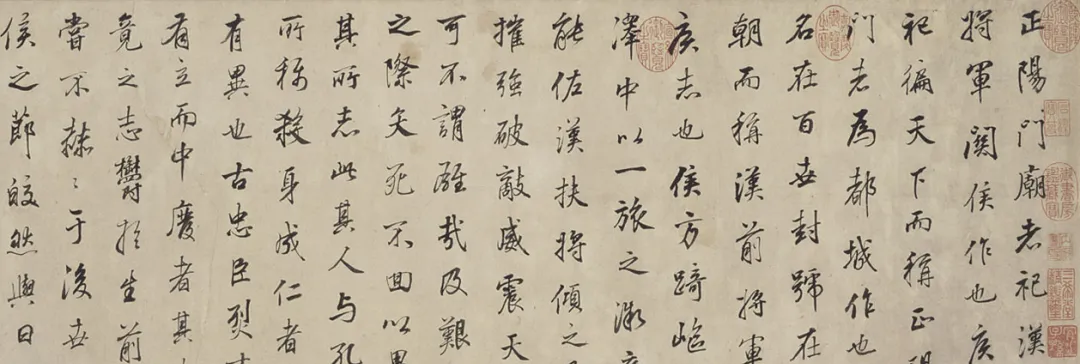 正陽門廟者祀漢
將軍關侯作也侯
祀徧天下而稱正陽
門者為都城作也
名在百世封號在
朝而稱漢前將軍
侯志也侯方踦嶇
澤中以一旅之微
能佐漢扶將傾之
摧強破敵威震天
可不謂雄哉及艱
之際矢死不回以畢
其所志此其人与孔
所稱殺身成仁者
有異也古忠臣烈
有立而中廢者其
竟之志鬱於生前
嘗不赫〻于後世
侯之節皎然與日